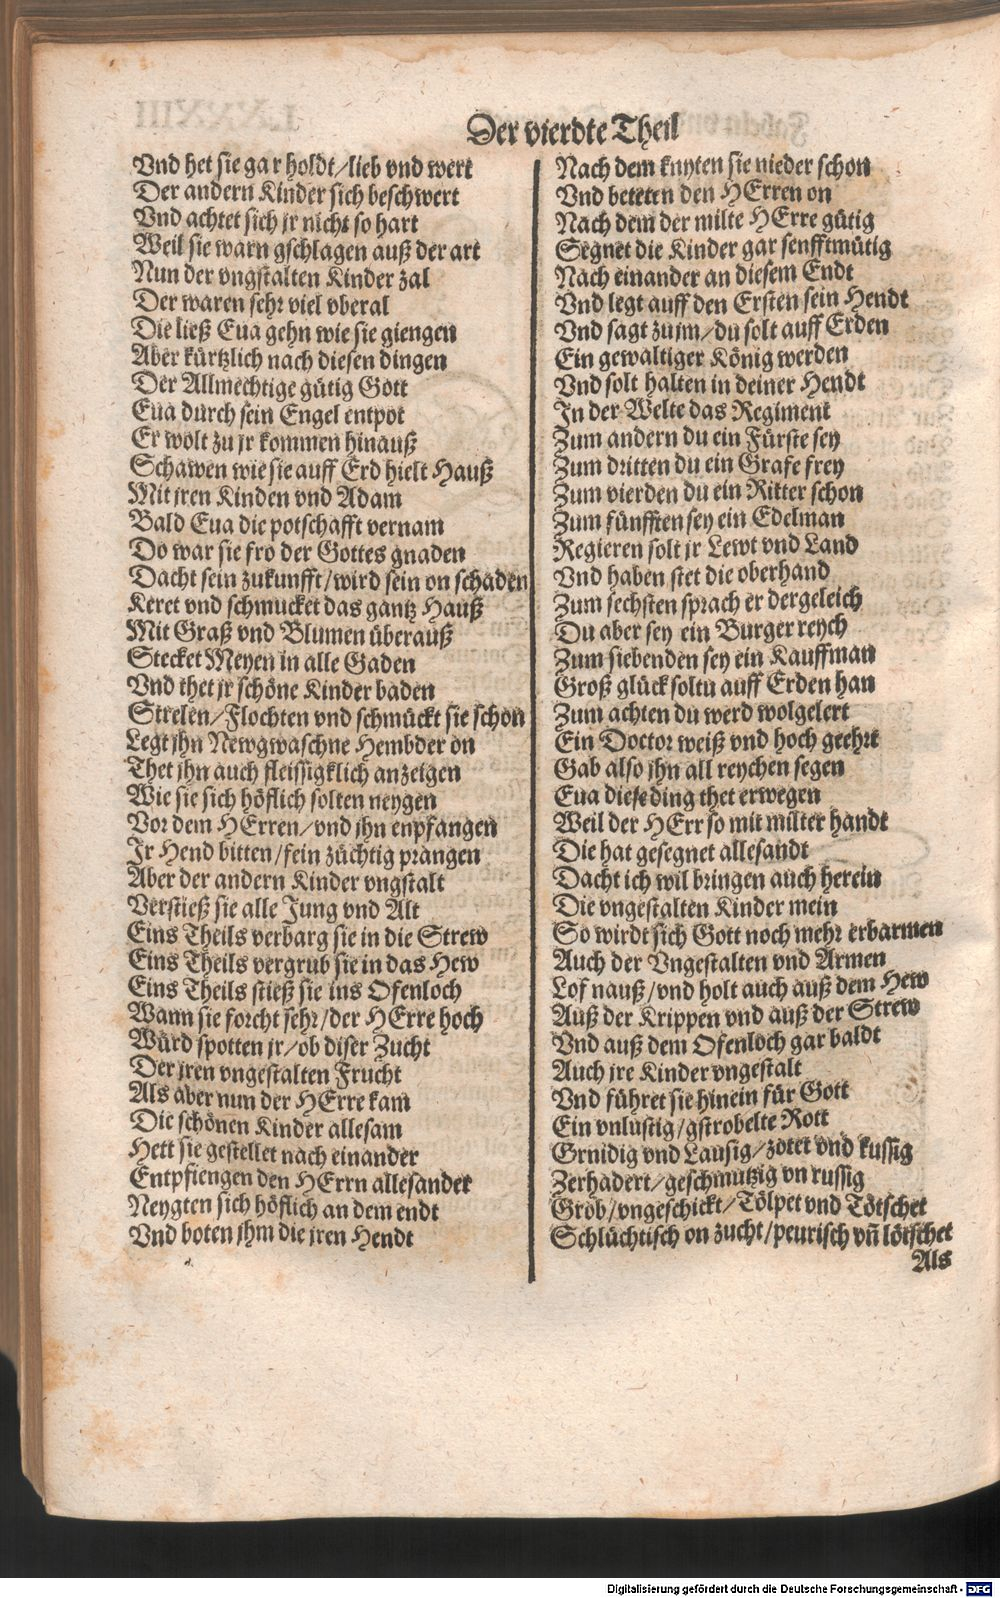 Der vierdte Theil
Vnd het sie gar holdt/lieb vnd wert
Der andern Kinder sich beschwert
Vnd achtet sich jr nicht so hart
Weil sie warn gschlagen auß der art
Nun der vngstalten Kinder zal
Der waren sehr viel vberal
Die ließ Eua gehn wie sie giengen
Aber kürtzlich nach diesen dingen
Der Allmechtige gütig Gott
Eua durch sein Engel entpot
Er wolt zu jr kommen hinauß
Schawen wie sie auff Erd hielt Hauß
Mit jren Kinden vnd Adam
Bald Eua die potschafft vernam
Do war sie fro der Gottes gnaden
Dacht sein zukunfft/wird sein on schaden
Keret vnd schmucket das gantz Hauß
Mit Graß vnd Blumen überauß
Stecket Meyen in alle Gaden
Vnd thet jr schöne Kinder baden
Strelen/Flochten vnd schmückt sie schon
Legt jhn Newgwaschne Hembder on
Thet jhn auch fleissigklich anzeigen
Wie sie sich höflich solten neygen
Vor dem HErren/vnd jhn enpfangen
Jr Hend bitten/fein züchtig prangen
Aber der andern Kinder vngstalt
Verstieß sie alle Jung vnd Alt
Eins Theils verbarg sie in die Strew
Eins Theils vergrub sie in das Hew
Eins Theils stieß sie ins Ofenloch
Wann sie forcht sehr/der HErre hoch
Würd spotten jr/ob diser Zucht
Der jren vngestalten Frucht
Als aber nun der HErre kam
Die schönen Kinder allesam
Hett sie gestellet nach einander
Entpfiengen den HErrn allesander
Neygten sich höflich an dem endt
Vnd boten jhm die jren Hendt
Nach dem knyten sie nieder schon
Vnd beteten den HErren on
Nach dem der milte HErre gütig
Segnet die Kinder gar senfftmütig
Nach einander an diesem Endt
Vnd legt auff den Ersten sein Hendt
Vnd sagt zu jm/du solt auff Erden
Ein gewaltiger König werden
Vnd solt halten in deiner Hendt
In der Welte das Regiment
Zum andern du ein Fürste sey
Zum dritten du ein Grafe frey
Zum vierden du ein Ritter schon
Zum fünfften sey ein Edelman
Regieren solt jr Lewt vnd Land
Vnd haben stet die oberhand
Zum sechsten sprach er dergeleich
Du aber sey ein Burger reych
Zum siebenden sey ein Kauffman
Groß glück soltu auff Erden han
Zum achten du werd wolgelert
Ein Doctor weiß vnd hoch geehrt
Gab also jhn all reychen segen
Eua diese ding thet erwegen
Weil der HErr so mit milter handt
Die hat gesegnet allesandt
Dacht ich wil bringen auch herein
Die vngestalten Kinder mein
So wirdt sich Gott noch mehr erbarmen
Auch der Vngestalten vnd Armen
Lof nauß/vnd holt auch auß dem Hew
Auß der Krippen vnd auß der Strew
Vnd auß dem Ofenloch gar baldt
Auch jre Kinder vngestalt
Vnd führet sie hinein für Gott
Ein vnlustig/gstrobelte Rott
Grnidig vnd Lausig/zotet vnd kussig
Zerhadert/geschmutzig vn russig
Grob/vngeschickt/Tölpet vnd Tötschet
Schlüchtisch on zucht/peurisch vn̄ lötschet
Als
Digitalisierung gefördert durch die Deutsche Forschungsgemeinschaft - DFG